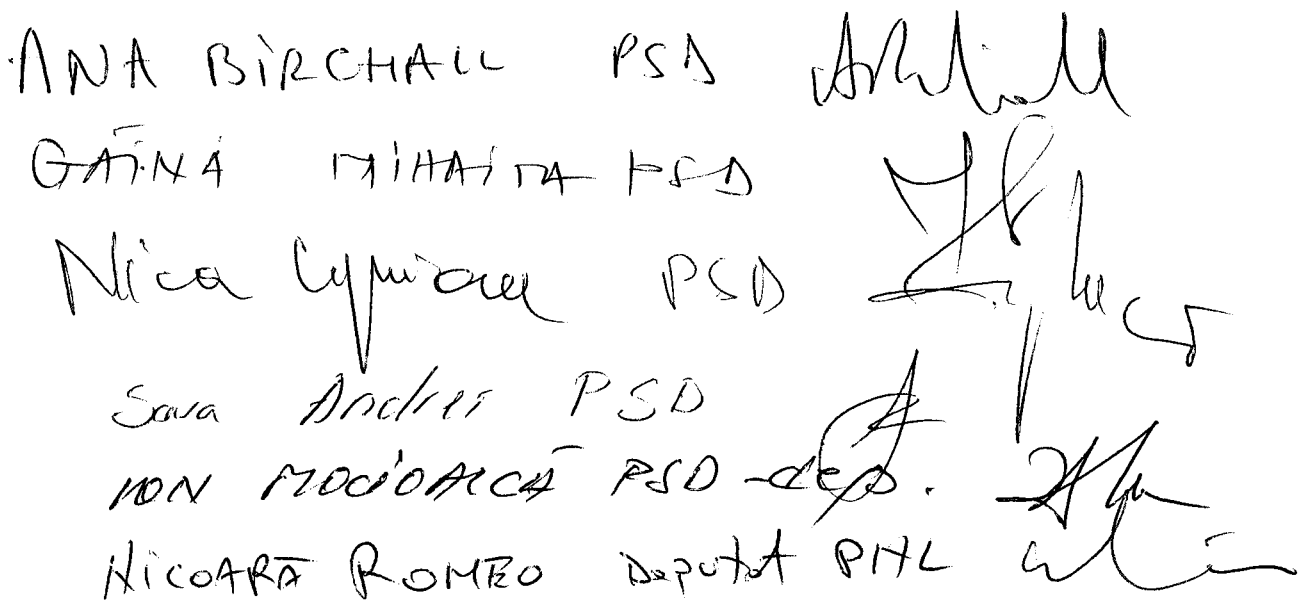 ANA BIRCHALL PSD
GĂINĂ MIHĂIȚĂ PSD
Nica Cyprian PSD
Sava Andrei PSD
ION MOCIOALCĂ PSD - dep.
NICOARĂ ROMEO Deputat PNL